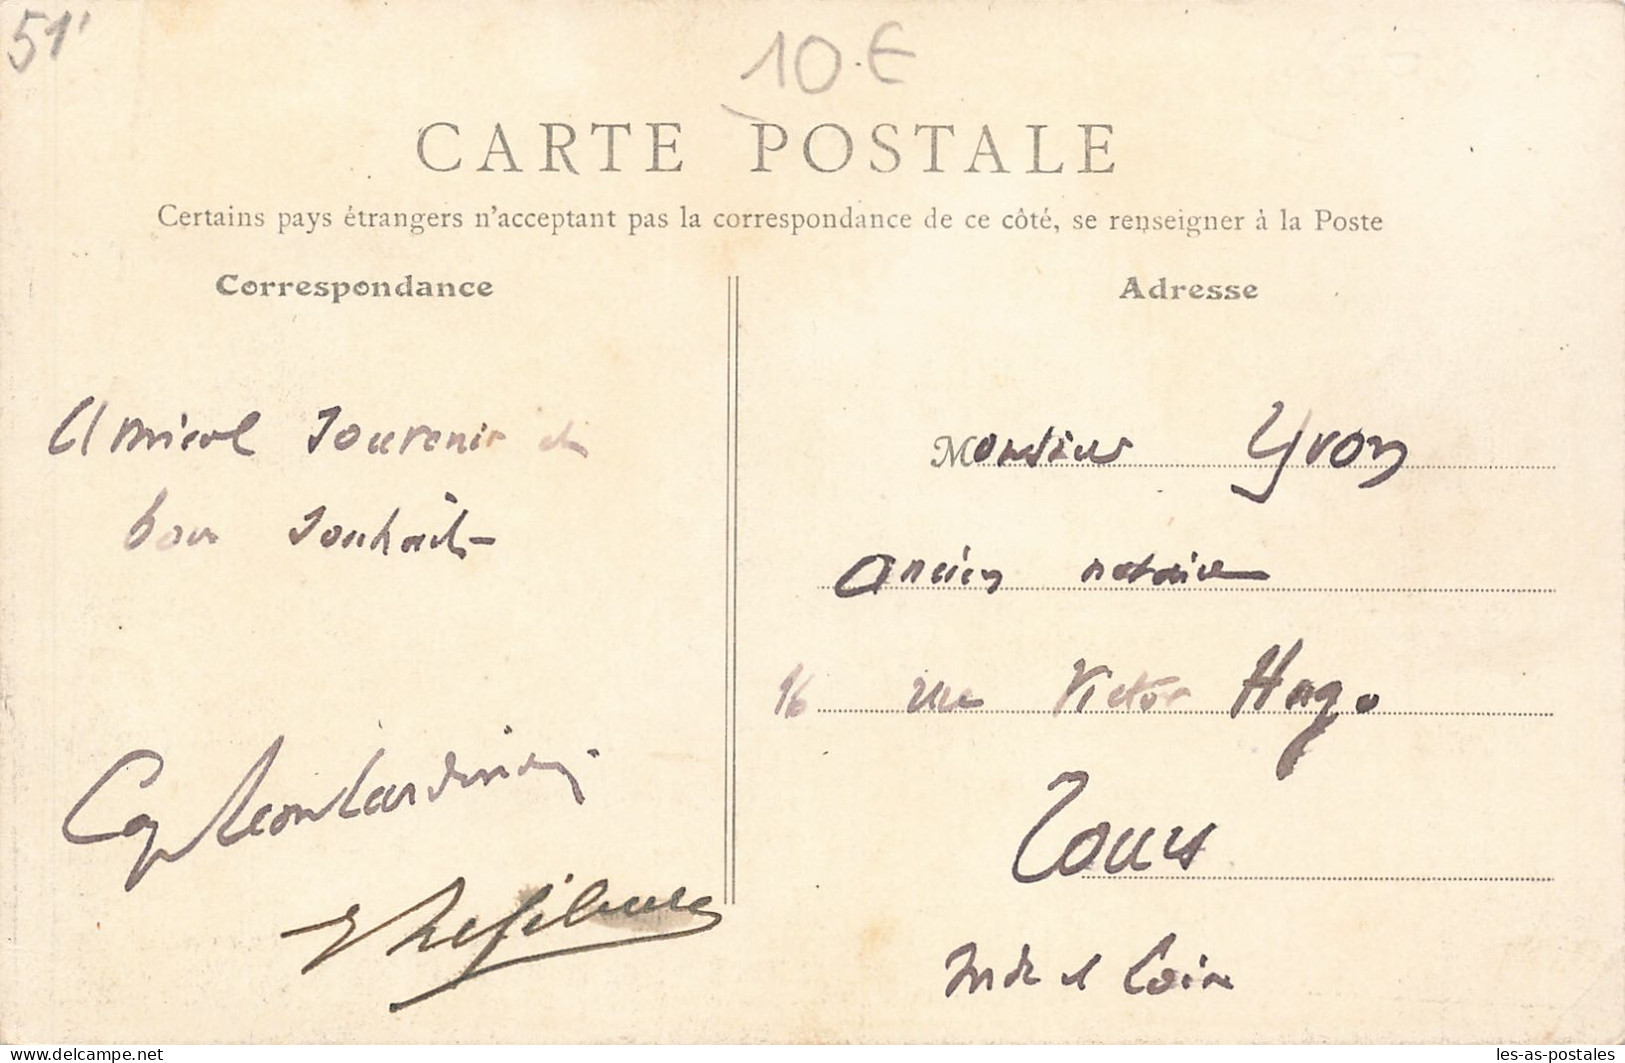 51'
10 €
CARTE POSTALE
Certains pays étrangers n'acceptant pas la correspondance de ce côté, se renseigner à la Poste
Correspondance
Adresse
Amical Souvenir et
bons Souhaits
Monsieur Yvon
Ancien notaire
16 rue Victor Hugo
Tours
Indre et Loire
Delcampe.net
les-as-postales